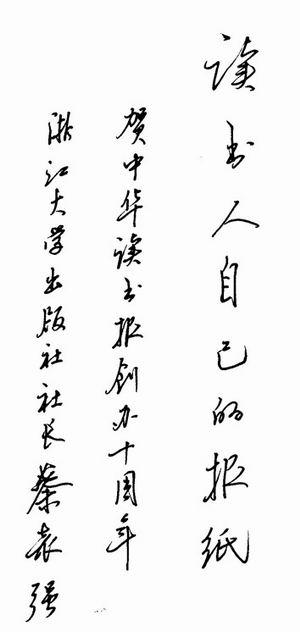 读书人自己的报纸
贺中华读书报创办十周年
浙江大学出版社社长蔡袁强